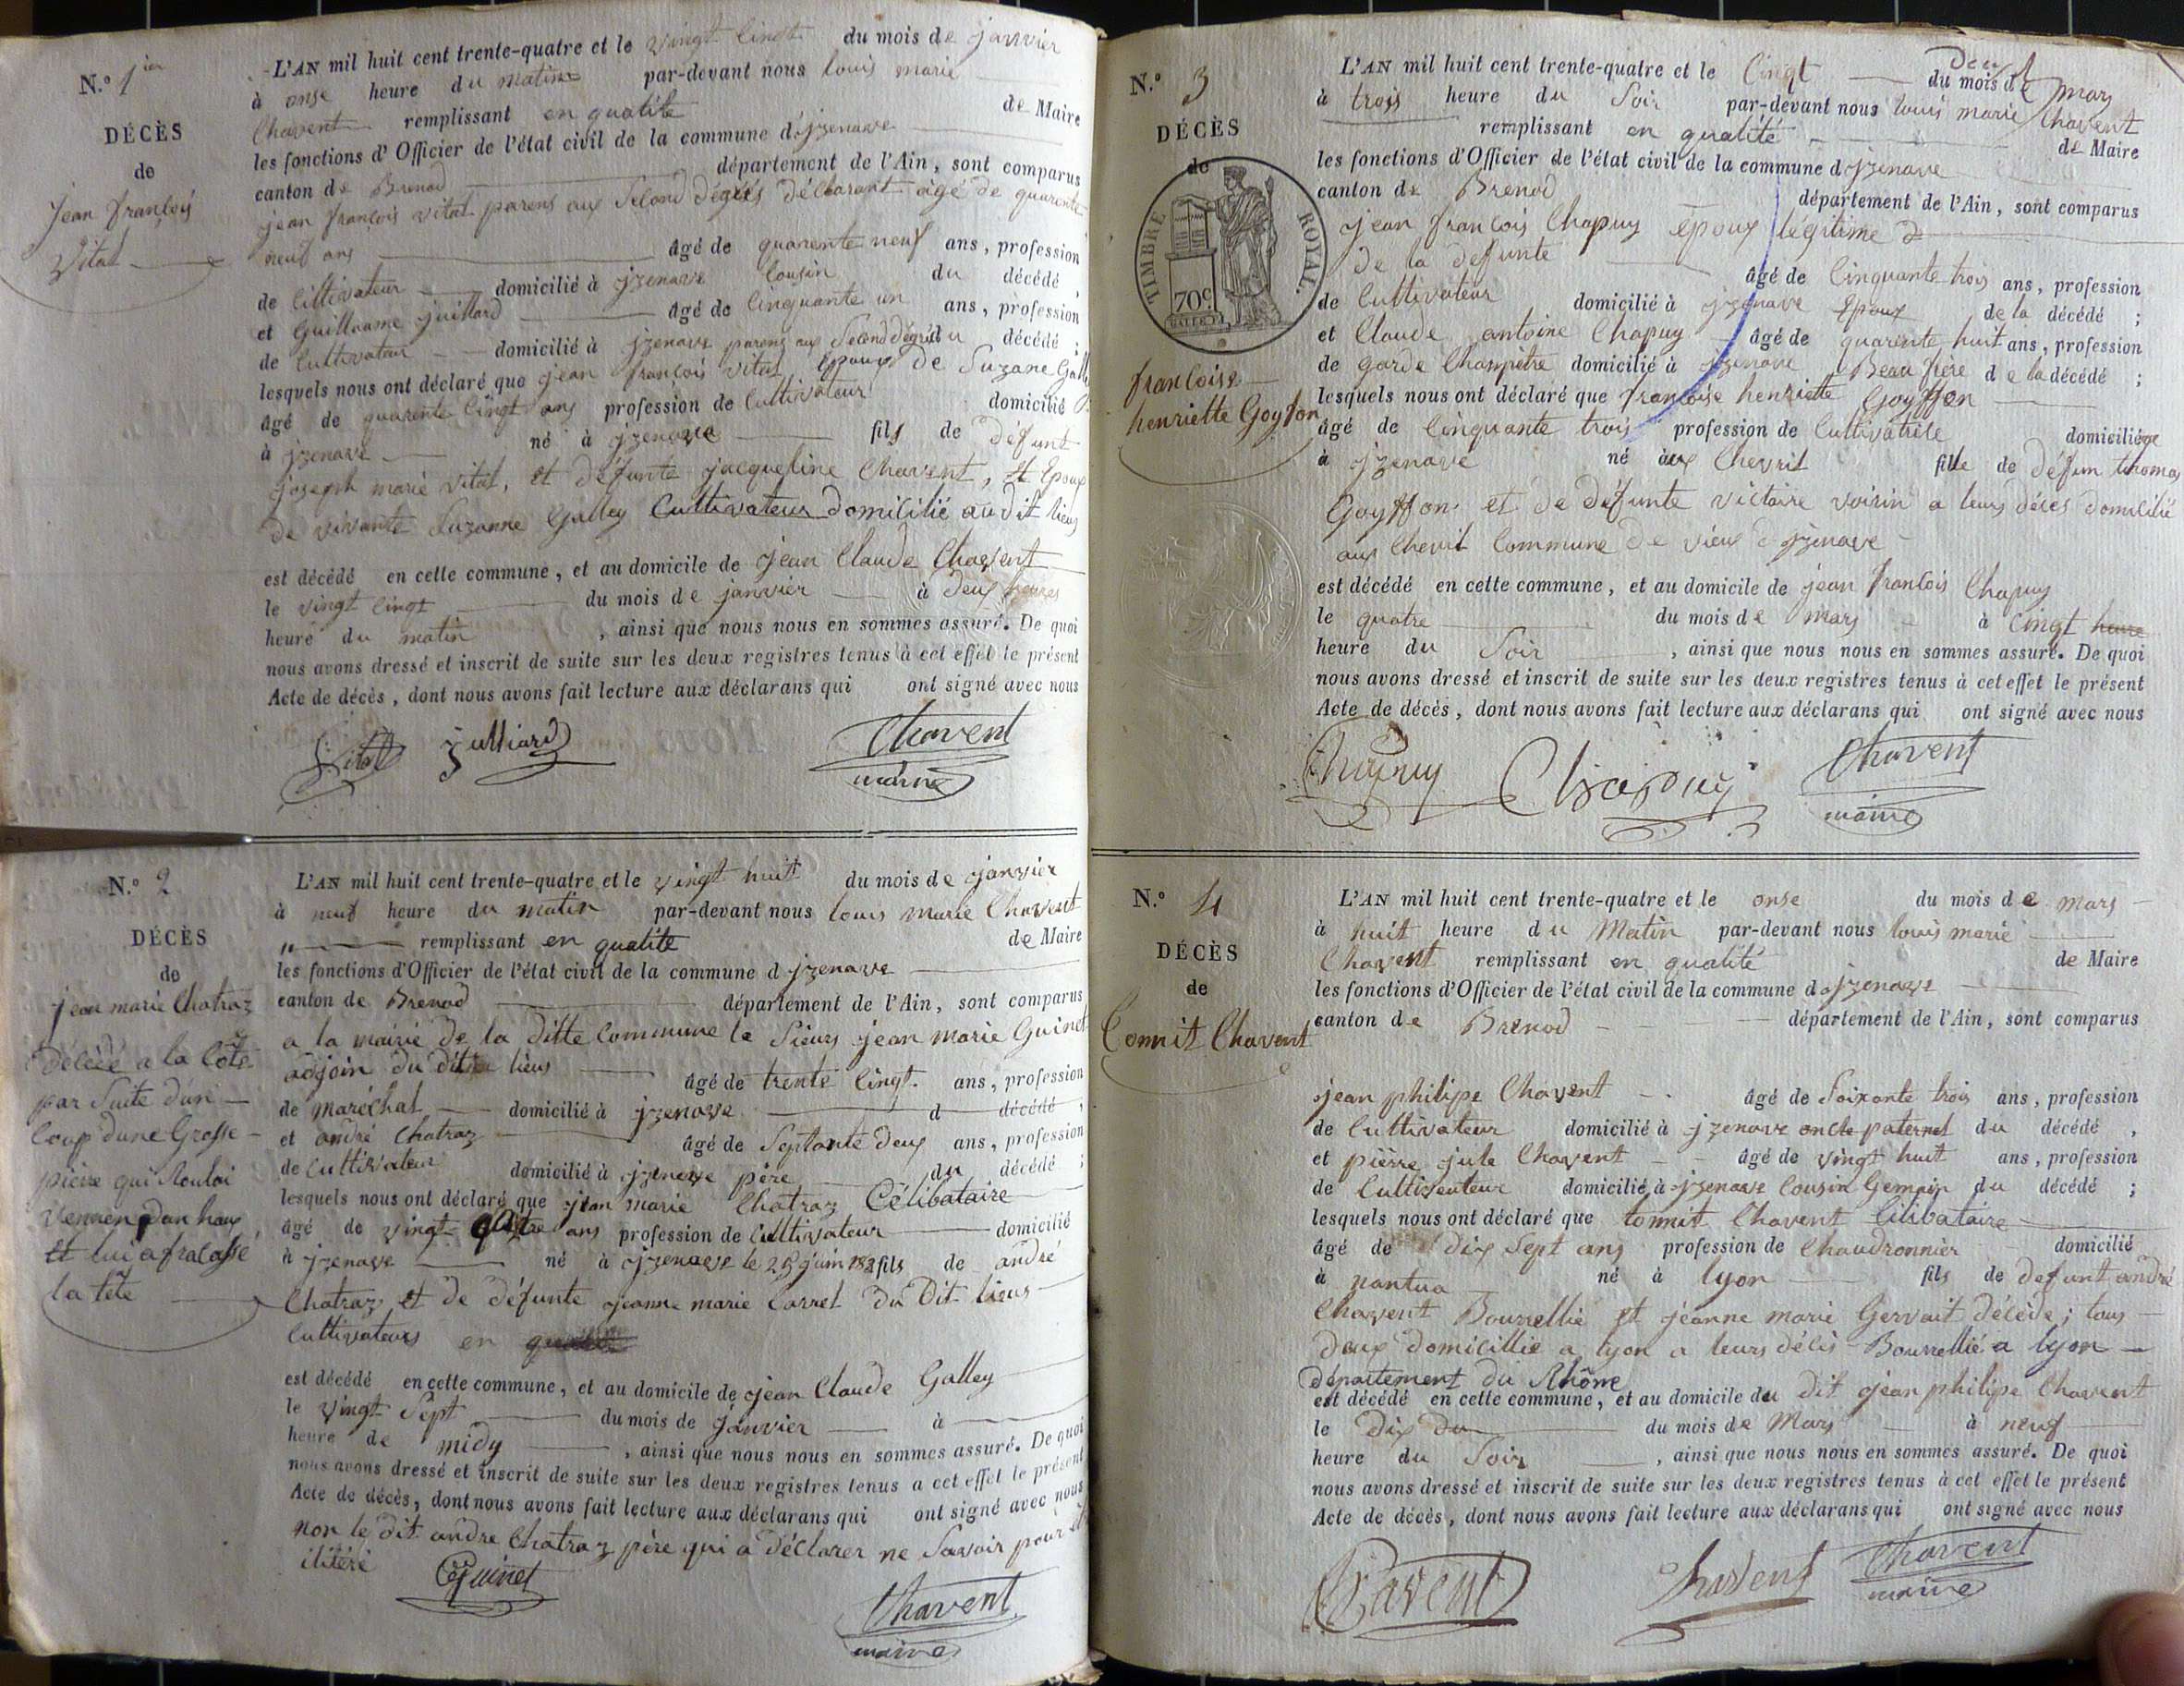 N.º 1ier
DÉCÈS
de
jean françois
vital
L'AN mil huit cent trente-quatre et le vingt cinqt du mois de janvier
à onse heure du matin par-devant nous louis marie
Chavent remplissant en qualité de Maire
les fonctions d'Officier de l'état civil de la commune d'jzenave
canton de Brenod département de l'Ain, sont comparus
jean françois vital parens aux second degrés déclarant âgé de quarente
neuf ans âgé de quarente neuf ans, profession
de cultivateur domicilié à jzenave cousin du décédé,
et Guillaume juillard âgé de cinquante un ans, profession
de cultivateur domicilié à jzenave parens aux second degré du décédé;
lesquels nous ont déclaré que jean françois vital époux de Suzane Galley
âgé de quarente cinqt ans profession de cultivateur domicilié
à jzenave né à jzenave fils de défunt
joseph marie vital, et défunte jacqueline Chavent, et époux
de vivante Suzanne Galley cultivateur domicilié audit lieux
est décédé en cette commune, et au domicile de jean Claude Chavent
le vingt cinqt du mois de janvier à deux heures
heure du matin, ainsi que nous nous en sommes assuré. De quoi
nous avons dressé et inscrit de suite sur les deux registres tenus à cet effet le présent
Acte de décès, dont nous avons fait lecture aux déclarans qui ont signé avec nous
Vital Julliard Chavent
maire
N.º 2
DÉCÈS
de
jean marie Chatraz
décédé a la cote
par suite d'un
coup d'une Grosse
pierre qui roulai
venaen dan haux
et lui a fracassé
la tête
L'AN mil huit cent trente-quatre et le vingt huit du mois de janvier
à neuf heure du matin par-devant nous louis marie Chavent
remplissant en qualité de Maire
les fonctions d'Officier de l'état civil de la commune d jzenave
canton de Brenod département de l'Ain, sont comparus
a la mairie de la ditte commune le sieurs jean marie Guinet
adjoin du dit lieux âgé de trente cinqt ans, profession
de maréchal domicilié à jzenave d décédé,
et andré Chatraz âgé de septante deux ans, profession
de cultivateur domicilié à jzenave père du décédé;
lesquels nous ont déclaré que jean marie Chatraz Célibataire
âgé de vingt quatre ans profession de cultivateur domicilié
à jzenave né à jzenave le 25 juin fils de andré
Chatraz et de défunte jeanne marie Carrel du dit lieux
cultivateurs en
est décédé en cette commune, et au domicile de jean Claude Galley
le vingt sept du mois de janvier à
heure de midy, ainsi que nous nous en sommes assuré. De quoi
nous avons dressé et inscrit de suite sur les deux registres tenus a cet effet le présent
Acte de décès, dont nous avons fait lecture aux déclarans qui ont signé avec nous
non le dit andre Chatraz père qui a déclarer ne savoir pour et
ilitéré
Guinet Chavent
maire
N.º 3
DÉCÈS
de
TIMBRE ROYAL.
70c
françoise
henriette Goyffon
L'AN mil huit cent trente-quatre et le cinqt du mois de mars
à trois heure du soir par-devant nous louis marie Chavent
remplissant en qualité de Maire
les fonctions d'Officier de l'état civil de la commune d jzenave
canton de Brenod département de l'Ain, sont comparus
jean françois Chapuy époux légitime
de la defunte âgé de cinquante trois ans, profession
de cultivateur domicilié à jzenave époux de la décédé;
et Claude antoine Chapuy âgé de quarente huit ans, profession
de garde champêtre domicilié à jzenave Beau frère de la décédé;
lesquels nous ont déclaré que françoise henriette Goyffon
âgé de cinquante trois profession de cultivatrice domiciliée
à jzenave né aux Chevril fille de défun thomas
Goyffon et de défunte victoire voirin a leurs décès domicilié
aux Chevril commune de vieux d jzenave
est décédé en cette commune, et au domicile de jean françois Chapuy
le quatre du mois de mars à cinqt heure
heure du soir, ainsi que nous nous en sommes assuré. De quoi
nous avons dressé et inscrit de suite sur les deux registres tenus à cet effet le présent
Acte de décès, dont nous avons fait lecture aux déclarans qui ont signé avec nous
Chapuy Chapuy Chavent
maire
N.º 4
DÉCÈS
de
Connit Chavent
L'AN mil huit cent trente-quatre et le onse du mois de mars
à huit heure du Matin par-devant nous louis marie
Chavent remplissant en qualité de Maire
les fonctions d'Officier de l'état civil de la commune d jzenave
canton de Brenod département de l'Ain, sont comparus
jean philipe Chavent âgé de soixante trois ans, profession
de cultivateur domicilié à jzenave oncle paternel du décédé,
et pièrre jule Chavent âgé de vingt huit ans, profession
de cultivateur domicilié à jzenave cousin Germain du décédé;
lesquels nous ont déclaré que tonnit Chavent célibataire
âgé de dix sept ans profession de Chaudronnier domicilié
à nantua né à lyon fils de defunt andré
Chavent Bourrellié et jeanne marie Gervait décédé; tous
deux domicillié a lyon a leurs décès Bourrellié a lyon
département du Rhône
est décédé en cette commune, et au domicile du dit jean philipe Chavent
le dix du du mois de Mars à neuf
heure du soir, ainsi que nous nous en sommes assuré. De quoi
nous avons dressé et inscrit de suite sur les deux registres tenus à cet effet le présent
Acte de décès, dont nous avons fait lecture aux déclarans qui ont signé avec nous
Chavent Chavent Chavent
maire